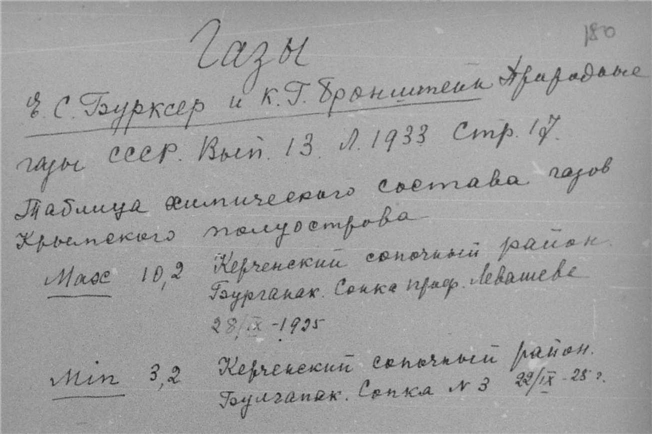 180
Газы
Е. С. Бурксер и К. Г. Бронштейн Природные
газы СССР. Вып. 13. Л. 1933 Стр. 17.
Таблица химического состава газов
Крымского полуострова
Max 10,2 Керченский сопочный район.
Бурганак. Сопка проф. Левашева
28/IX-1925
Min 3,2 Керченский сопочный район.
Булганак. Сопка N 3 22/IX-25 г.